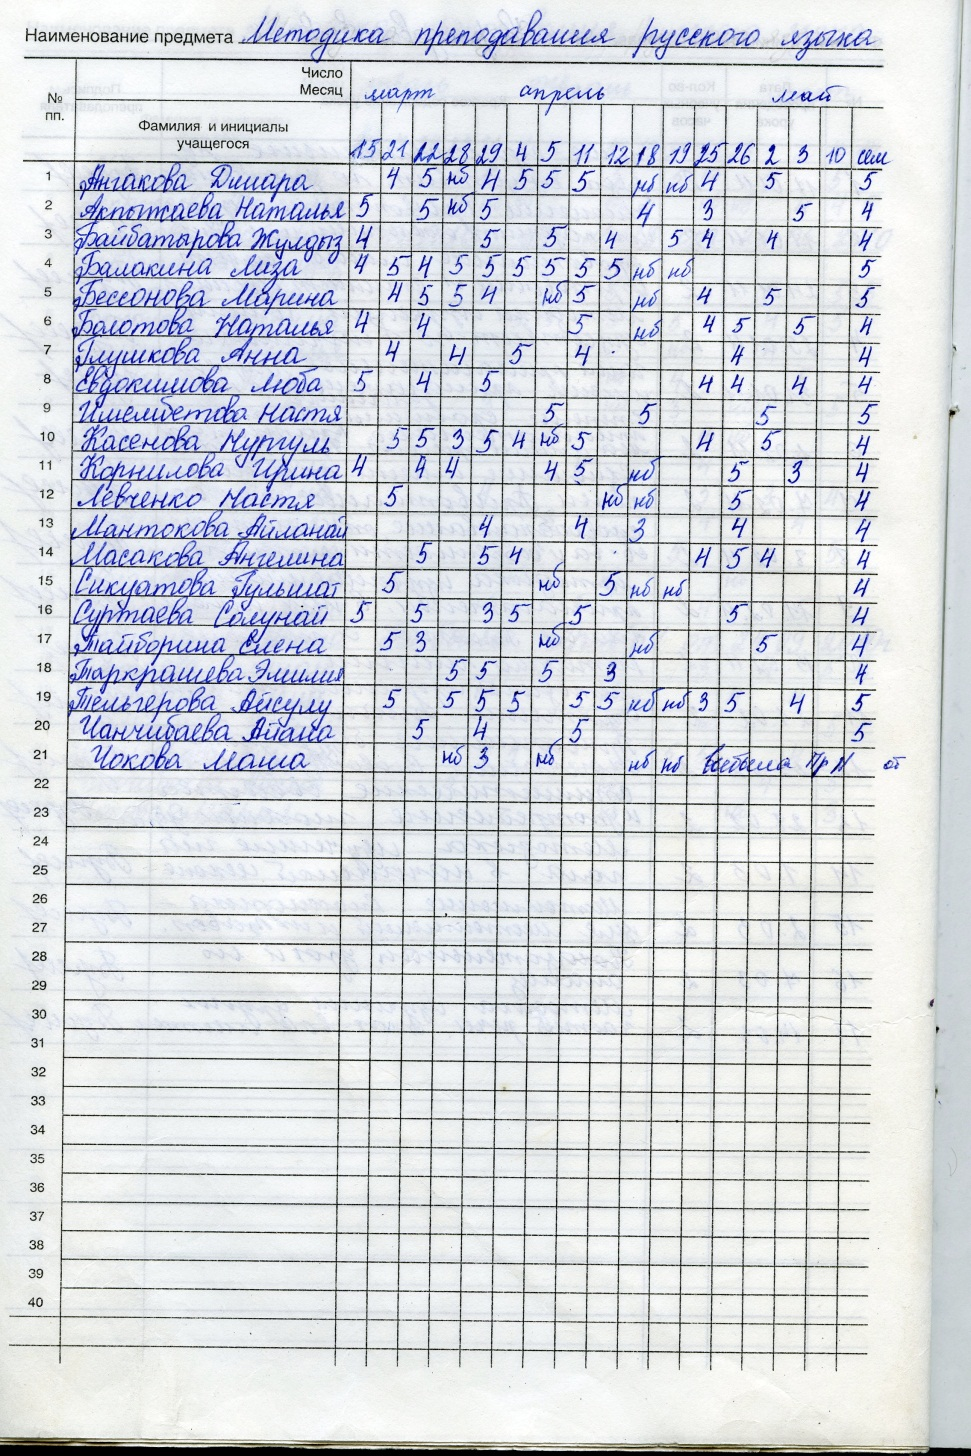 Наименование предмета Методика преподавания русского языка
Число
Месяц март апрель май
№ пп.
Фамилия и инициалы учащегося 15 21 22 28 29 4 5 11 12 18 19 25 26 2 3 10 сем
1 Ангакова Динара 4 5 нб 4 5 5 5 нб нб 4 5 5
2 Акпыжаева Наталья 5 5 нб 5 4 3 5 4
3 Байбатырова Жулдыз 4 5 5 4 5 4 4 4
4 Балакина Лиза 4 5 4 5 5 5 5 5 5 нб нб 5
5 Бессонова Марина 4 5 5 4 нб 5 нб 4 5 5
6 Болотова Наталья 4 4 5 нб 4 5 5 4
7 Глушкова Анна 4 4 5 4 4 4
8 Евдокимова Люба 5 4 5 4 4 4 4
9 Ишембетова Настя 5 5 5 5
10 Касенова Нургуль 5 5 3 5 4 нб 5 4 5 4
11 Корнилова Ирина 4 4 4 4 5 нб 5 3 4
12 Левченко Настя 5 нб нб 5 4
13 Мантокова Айланай 4 4 3 4 4
14 Масакова Ангелина 5 5 4 4 5 4 4
15 Сикуатова Гульшат 5 нб 5 нб нб 4
16 Суртаева Солунай 5 5 3 5 5 5 4
17 Тайборина Елена 5 3 нб нб 5 4
18 Таркрашева Эмилия 5 5 5 3 4
19 Тельгерова Айсулу 5 5 5 5 5 5 нб нб 3 5 4 5
20 Чанчибаева Айана 5 4 5 5
21 Чокова Маша нб 3 нб нб нб выбыла пр № от
22
23
24
25
26
27
28
29
30
31
32
33
34
35
36
37
38
39
40